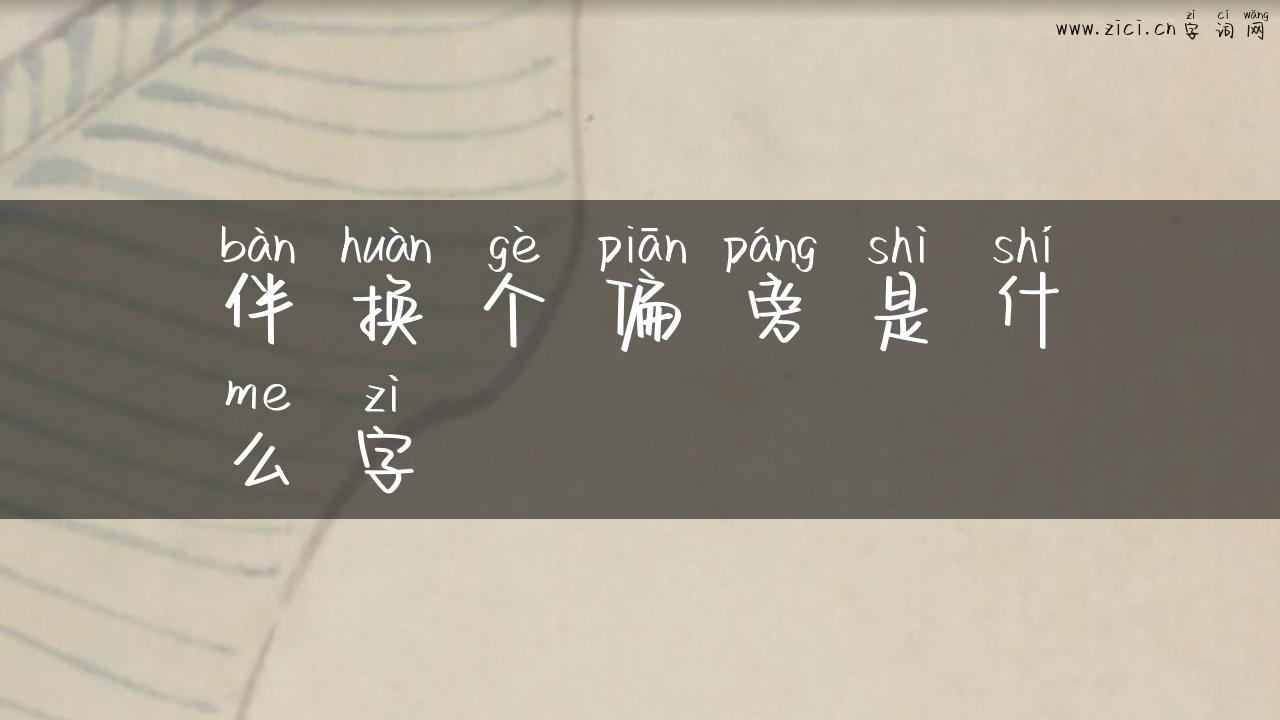 zì cí wǎng
www.zici.cn 字词网
bàn huàn gè piān páng shì shí
伴换个偏旁是什
me zì
么字